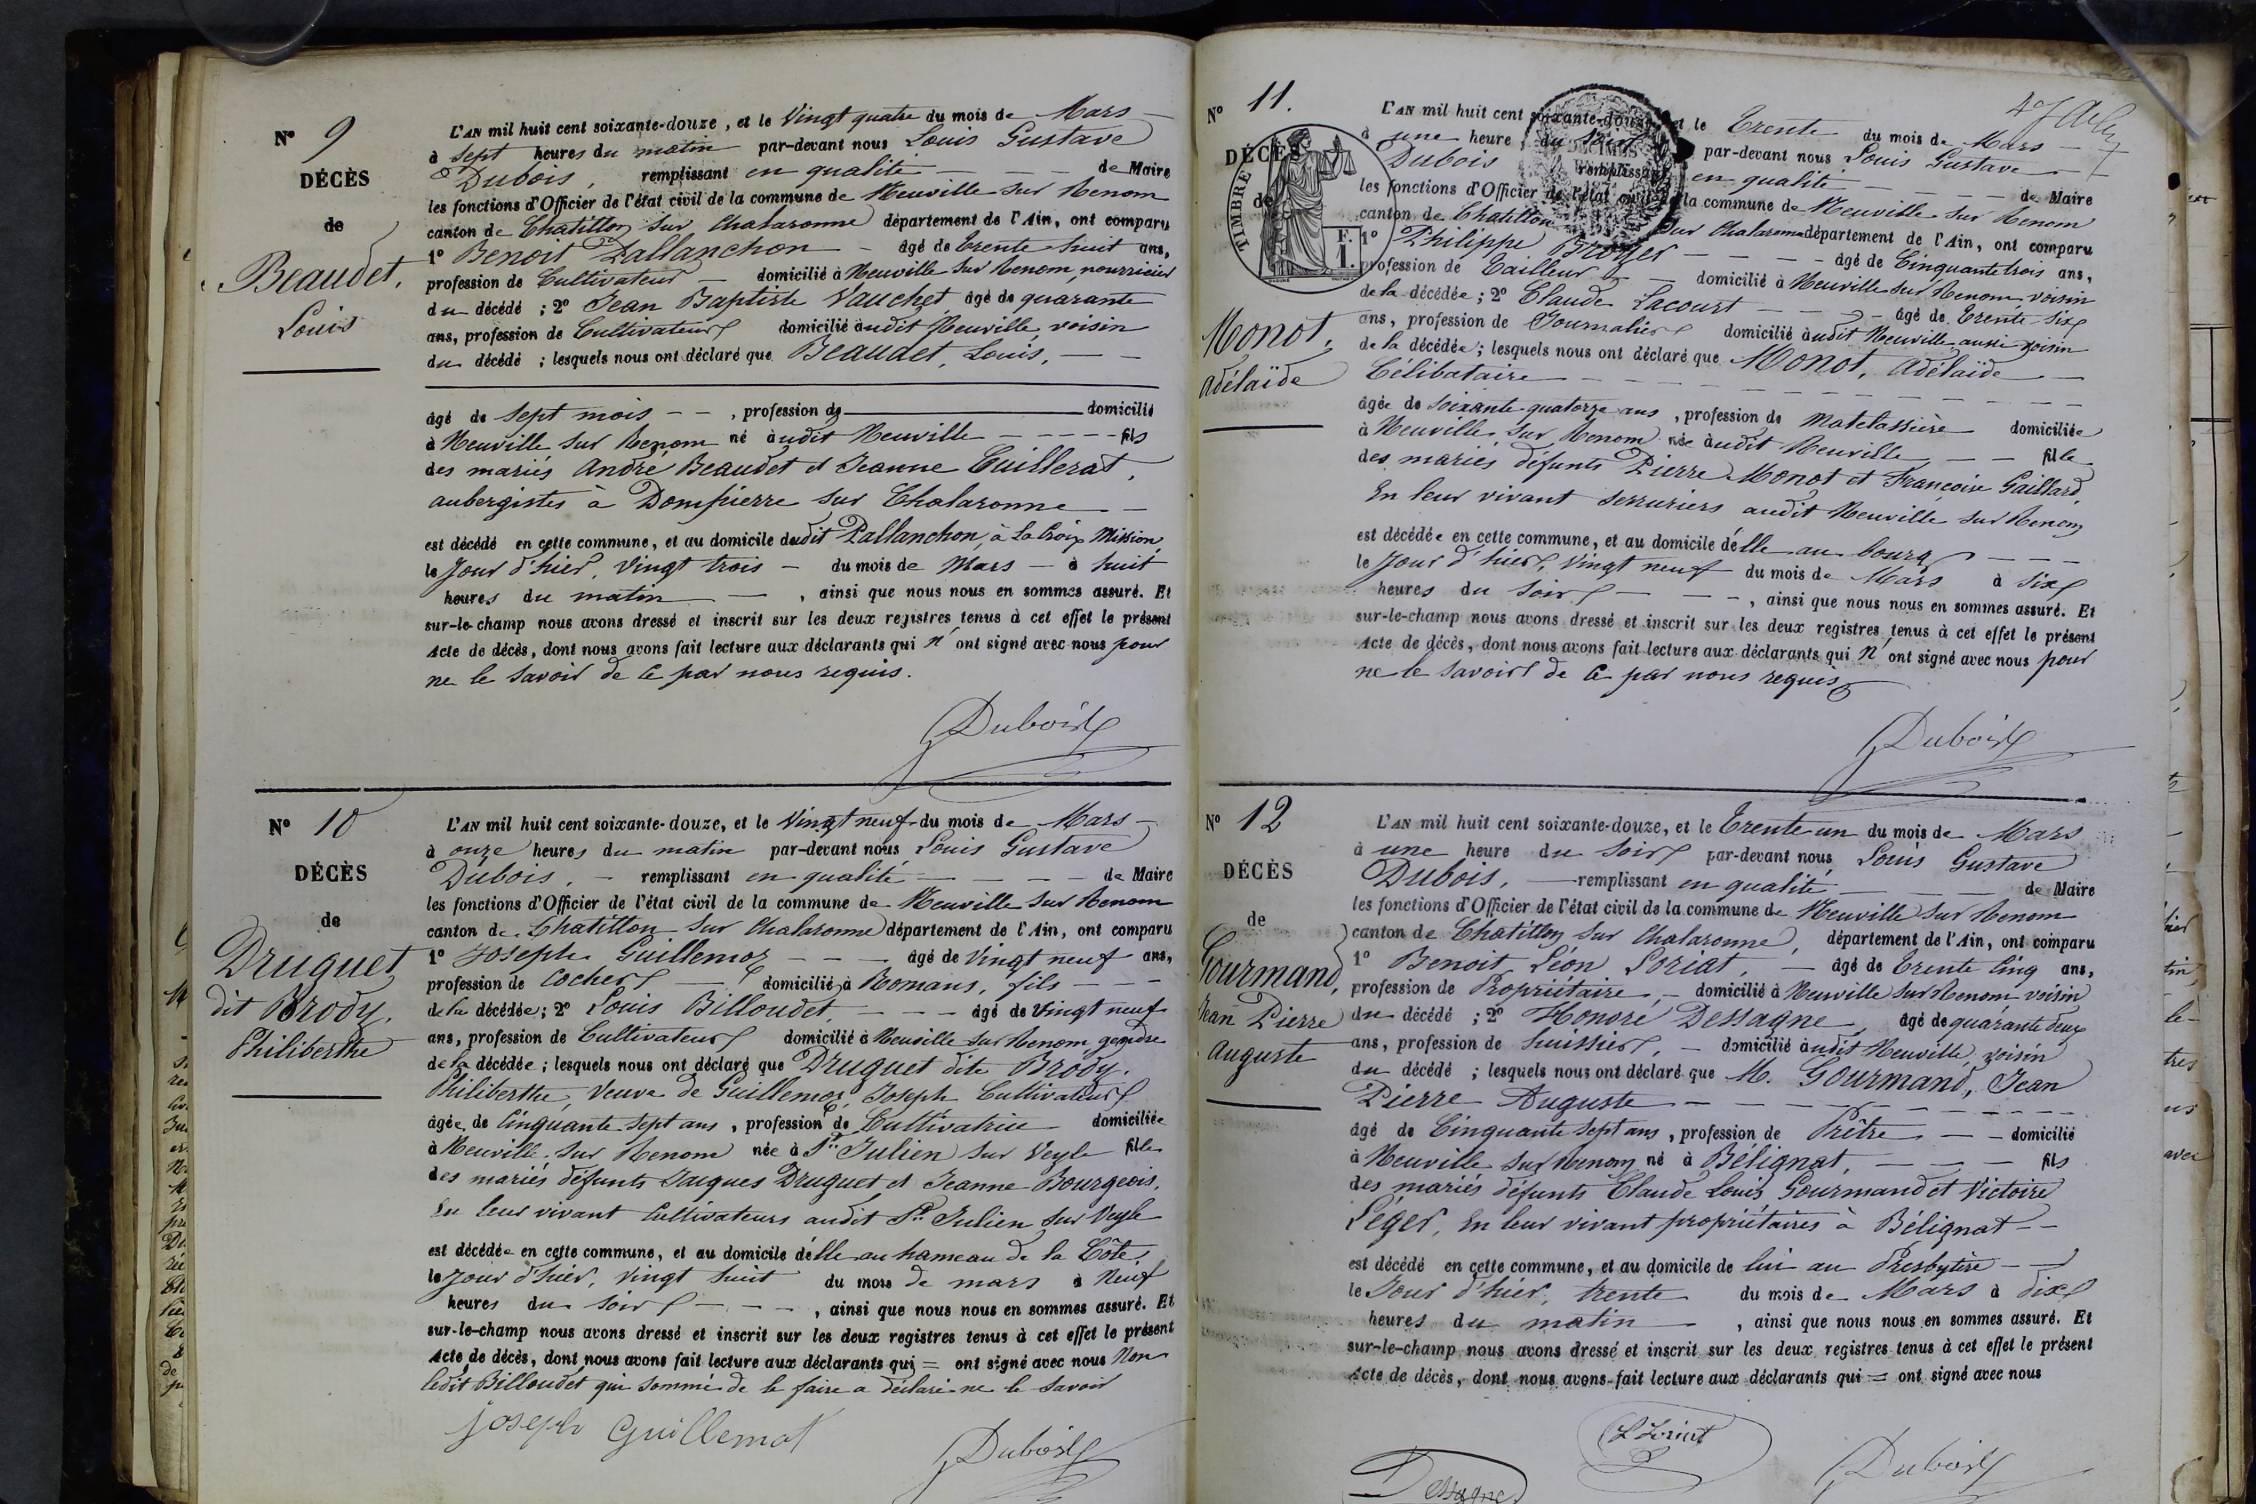 N° 9
DÉCÈS
de
Beaudet,
Louis
L'AN mil huit cent soixante-douze, et le Vingt quatre du mois de Mars
à sept heures du matin par-devant nous Louis Gustave
Dubois, remplissant en qualité de Maire
les fonctions d'Officier de l'état civil de la commune de Neuville sur Renom
canton de Chatillon sur Chalaronne département de l'Ain, ont comparu
1° Benoit Pallanchon âgé de trente huit ans,
profession de Cultivateur domicilié à Neuville sur Renom, nourricier
du décédé ; 2° Jean Baptiste Vauchet âgé de quarante
ans, profession de Cultivateur domicilié audit Neuville voisin
du décédé ; lesquels nous ont déclaré que Beaudet, Louis,
âgé de sept mois , profession de domicilié
à Neuville sur Renom né audit Neuville fils
des mariés André Beaudet et Jeanne Cuillerat,
aubergistes à Dompierre sur Chalaronne
est décédé en cette commune, et au domicile dudit Pallanchon, à La Croix Mission
le Jour d'hier, Vingt trois du mois de Mars à huit
heures du matin , ainsi que nous nous en sommes assuré. Et
sur-le-champ nous avons dressé et inscrit sur les deux registres tenus à cet effet le présent
Acte de décès, dont nous avons fait lecture aux déclarants qui n'ont signé avec nous pour
ne le savoir de ce par nous requis.
Dubois
N° 10
DÉCÈS
de
Druguet
dit Brody,
Philiberthe
L'AN mil huit cent soixante-douze, et le Vingt neuf du mois de Mars
à onze heures du matin par-devant nous Louis Gustave
Dubois, remplissant en qualité de Maire
les fonctions d'Officier de l'état civil de la commune de Neuville sur Renom
canton de Chatillon sur Chalaronne département de l'Ain, ont comparu
1° Joseph Guillemot âgé de Vingt neuf ans,
profession de Cocher domicilié à Romans, fils
de la décédée ; 2° Louis Billoudet, âgé de Vingt neuf
ans, profession de Cultivateur domicilié à Neuville sur Renom gendre
de la décédée ; lesquels nous ont déclaré que Druguet dite Brody,
Philiberthe, Veuve de Guillemot Joseph Cultivateur
âgée de Cinquante sept ans , profession de Cultivatrice domiciliée
à Neuville sur Renom née à St Julien sur Veyle fille
des mariés défunts Jacques Druguet et Jeanne Bourgeois,
En leur vivant Cultivateurs audit St Julien sur Veyle
est décédée en cette commune, et au domicile d'elle au hameau de la Côte,
le Jour d'hier, Vingt huit du mois de mars à Neuf
heures du soir , ainsi que nous nous en sommes assuré. Et
sur-le-champ nous avons dressé et inscrit sur les deux registres tenus à cet effet le présent
Acte de décès, dont nous avons fait lecture aux déclarants qui = ont signé avec nous Non
ledit Billoudet qui sommé de le faire a déclaré ne le savoir
joseph Guillemot
Dubois
N° 11.
DÉCÈS
de
TIMBRE
Monot,
Adélaïde
L'AN mil huit cent soixante-douze, et le Trente du mois de Mars
à une heure du soir par-devant nous Louis Gustave
Dubois remplissant en qualité de Maire
les fonctions d'Officier de l'état civil de la commune de Neuville sur Renom
canton de Chatillon sur Chalaronne département de l'Ain, ont comparu
1° Philippe Broyer âgé de Cinquante trois ans,
profession de Tailleur domicilié à Neuville sur Renom voisin
de la décédée ; 2° Claude Lacourt âgé de Trente six
ans, profession de Journalier domicilié audit Neuville aussi voisin
de la décédée ; lesquels nous ont déclaré que Monot, Adélaïde
Célibataire
âgée de soixante quatorze ans , profession de Matelassière domiciliée
à Neuville sur Renom née audit Neuville fille
des mariés défunts Pierre Monot et Françoise Gaillard,
En leur vivant serruriers audit Neuville sur Renom
est décédée en cette commune, et au domicile d'elle au bourg
le Jour d'hier, Vingt neuf du mois de Mars à Six
heures du soir , ainsi que nous nous en sommes assuré. Et
sur-le-champ nous avons dressé et inscrit sur les deux registres tenus à cet effet le présent
Acte de décès, dont nous avons fait lecture aux déclarants qui n'ont signé avec nous pour
ne le savoir de ce par nous requis
Dubois
N° 12
DÉCÈS
de
Gourmand,
Jean Pierre
Auguste
L'AN mil huit cent soixante-douze, et le Trente un du mois de Mars
à une heure du soir par-devant nous Louis Gustave
Dubois, remplissant en qualité de Maire
les fonctions d'Officier de l'état civil de la commune de Neuville sur Renom
canton de Chatillon sur Chalaronne, département de l'Ain, ont comparu
1° Benoit Léon Loriat, âgé de Trente Cinq ans,
profession de Propriétaire, domicilié à Neuville sur Renom voisin
du décédé ; 2° Honoré Dessagne, âgé de quarante deux
ans, profession de huissier, domicilié audit Neuville, voisin
du décédé ; lesquels nous ont déclaré que M. Gourmand, Jean
Pierre Auguste
âgé de Cinquante sept ans , profession de Prêtre domicilié
à Neuville sur Renom né à Bélignat, fils
des mariés défunts Claude Louis Gourmand et Victoire
Léger, En leur vivant propriétaires à Bélignat
est décédé en cette commune, et au domicile de lui au Presbytère
le Jour d'hier, trente du mois de Mars à dix
heures du matin , ainsi que nous nous en sommes assuré. Et
sur-le-champ nous avons dressé et inscrit sur les deux registres tenus à cet effet le présent
Acte de décès, dont nous avons fait lecture aux déclarants qui = ont signé avec nous
L Loriat
Dessagne
Dubois